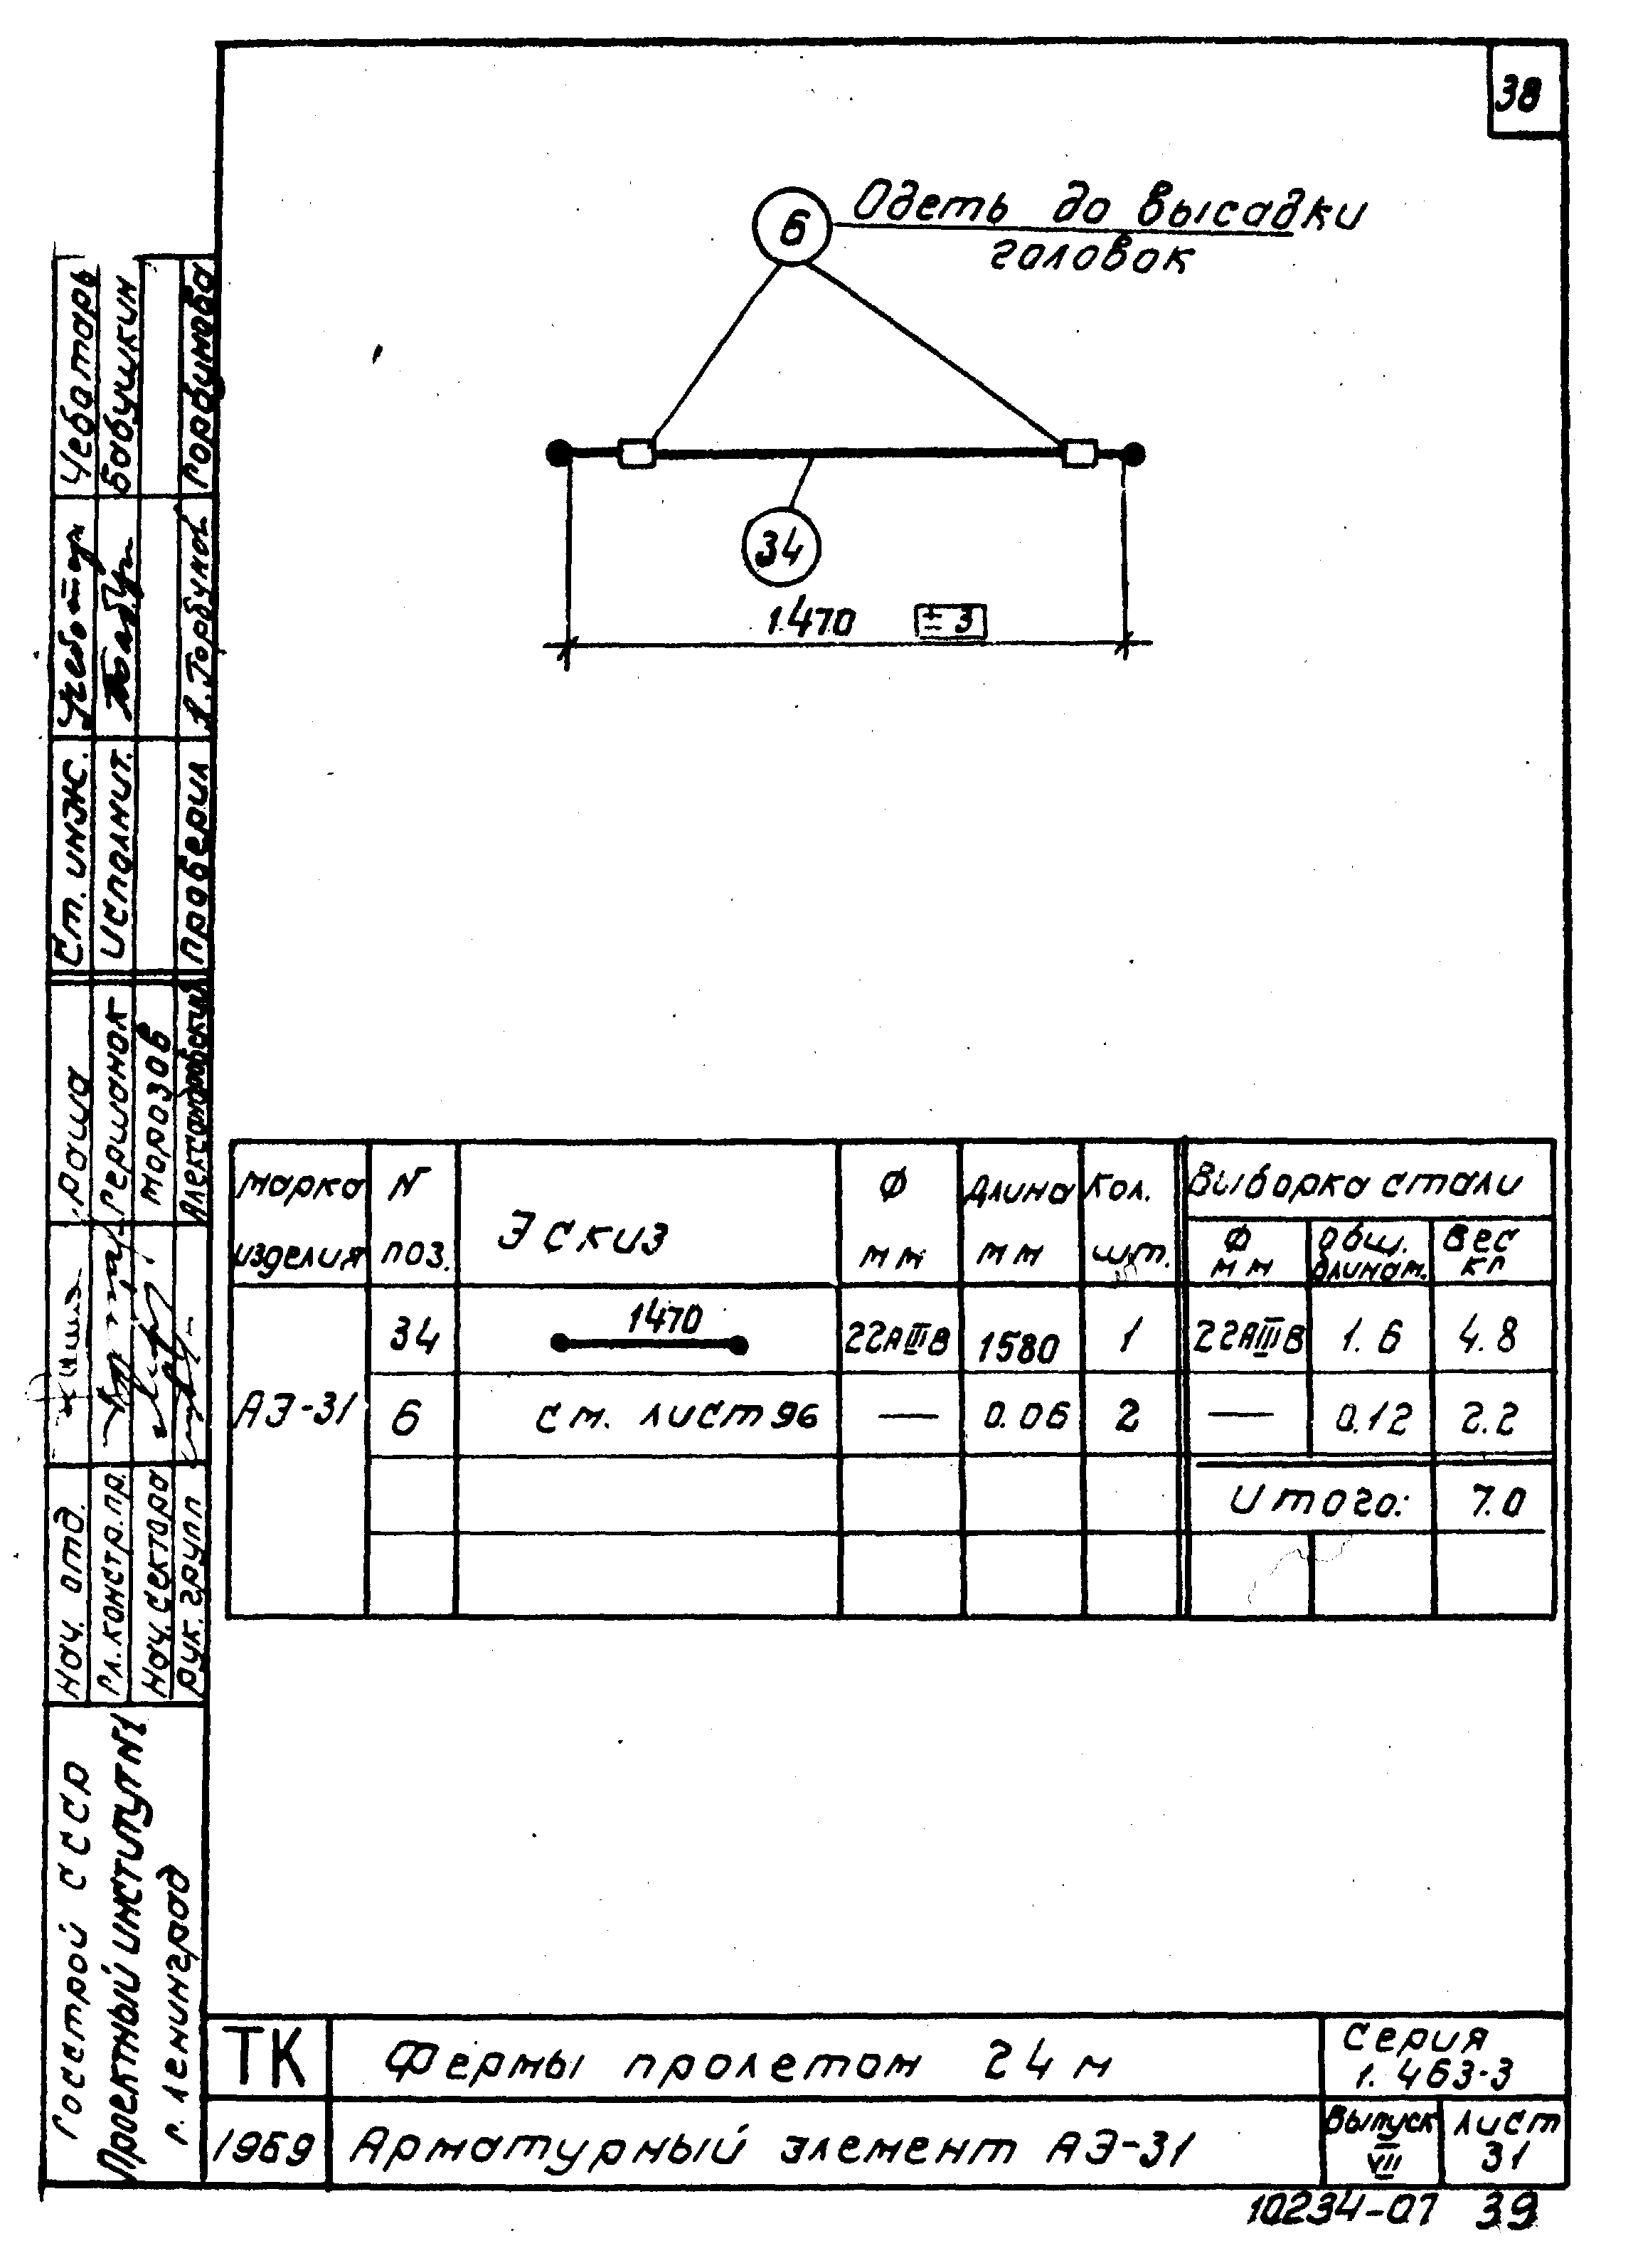 38
6 Одеть до высадки
головок
34
1470 ± 3
Марка изделия
N поз.
Эскиз
Ф мм
Длина мм
Кол. шт.
Выборка стали
Ф мм
Общ. длина м.
Вес кг
АЭ-31
34 1470 22АIIIв 1580 1 22АIIIв 1.6 4.8
6 см. лист 96 — 0.06 2 — 0.12 2.2
Итого: 7.0
Нач. отд. Раша Ст. инж. Чеботарь
Гл. констр. пр. Гершанок Исполнит. Бабушкин
Нач. сектора Морозов
Рук. групп Александровский Проверил Горбунова
Госстрой СССР
Проектный институт N1
г. Ленинград
ТК Фермы пролетом 24 м Серия
1. 463-3
1969 Арматурный элемент АЭ-31
Выпуск VII
Лист 31
10234-07 39